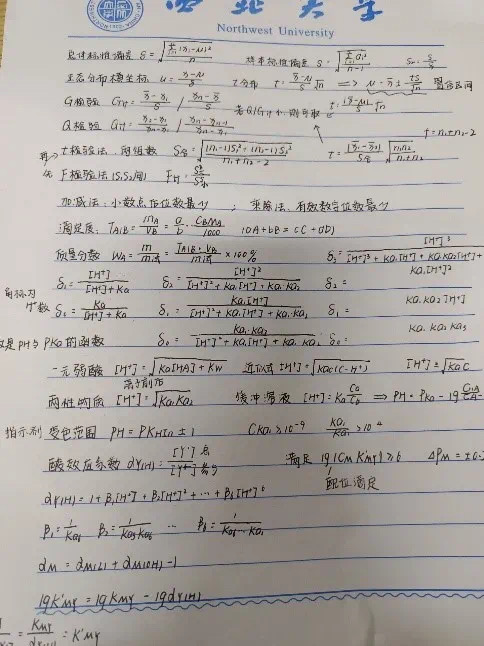 西北大学
Northwest University
总体标准偏差 δ=√(Σ(xi-μ)²/n) 样本标准偏差 S=√(Σdi²/n-1)
正态分布横坐标 u=(x-μ)/δ t分布 t=(x̄-μ)/S √n ⇒ μ=x̄±tS/√n 置信区间
G检验 G计
Q检验 Q计=(x2-x1)/(xn-x1) / (xn-xn-1)/(xn-x1)
t检验法 两组数 S合=√((n1-1)S1²+(n2-1)S2²/n1+n2-2) t=|x̄1-x̄2|/S合 √(n1n2/n1+n2) f=n1+n2-2
F检验法(S1,S2间) F计
加减法:小数点后位数最少; 乘除法:有效数字位数最少
滴定度:TA/B=mA/VB=a/b·CBMA/1000 (aA+bB=cC+dD)
质量分数 WA=m/m试=TA/B·VB/m试×100% δ3=[H+]³/[H+]³+Ka1[H+]²+Ka1Ka2[H+]+
δ1=[H+]/[H+]+Ka δ2=[H+]²/[H+]²+Ka1[H+]+Ka1·Ka2 δ2= Ka1[H+]²
角标为H+数 δ0=Ka/[H+]+Ka δ1=Ka1[H+]/[H+]²+Ka1[H+]+Ka1Ka2 δ1= Ka1Ka2[H+]
是PH与PKa的函数 δ0=Ka1·Ka2/[H+]²+Ka1[H+]+Ka1·Ka2 δ0= Ka1Ka2Ka3
一元弱酸 [H+]=√(Ka[HA]+Kw) 近似式[H+]=√(Ka(C-H+)) [H+]=√(KaC)
两性物质 [H+]=√(Ka1Ka2) 缓冲溶液 [H+]=Ka Ca/Cb ⇒ PH=PKa-lg
指示剂 变色范围 PH=PKHIn±1 CKa1≥10⁻⁹ Ka1/Ka2≥10⁻⁴
酸效应系数 αY(H)=[Y']总/[Y⁴⁻] 满足 lg(CM K'MY)≥6 ΔPM=±0.2
配位滴定
αY(H)=1+β1[H+]+β2[H+]²+…+β6[H+]⁶
β1=1/Ka6 β2=1/Ka5Ka6 … β6=1/Ka6…Ka1
αM=αM(L)+αM(OH)-1
lgK'MY=lgKMY-lgαY(H)
=KMY/αY(H)=K'MY